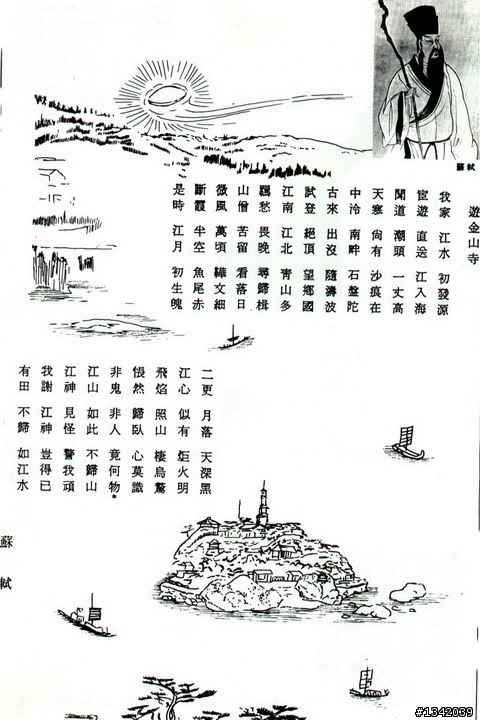 蘇軾
遊金山寺
我家 江水 初發源
宦遊 直送 江入海
聞道 潮頭 一丈高
天寒 尚有 沙痕在
中泠 南畔 石盤陀
古來 出沒 隨濤波
試登 絕頂 望鄉國
江南 江北 青山多
羈愁 畏晚 尋歸楫
山僧 苦留 看落日
微風 萬頃 鞾文細
斷霞 半空 魚尾赤
是時 江月 初生魄
二更 月落 天深黑
江心 似有 炬火明
飛焰 照山 棲烏驚
悵然 歸臥 心莫識
非鬼 非人 竟何物*
江山 如此 不歸山
江神 見怪 警我頑
我謝 江神 豈得已
有田 不歸 如江水
蘇軾
#1342039